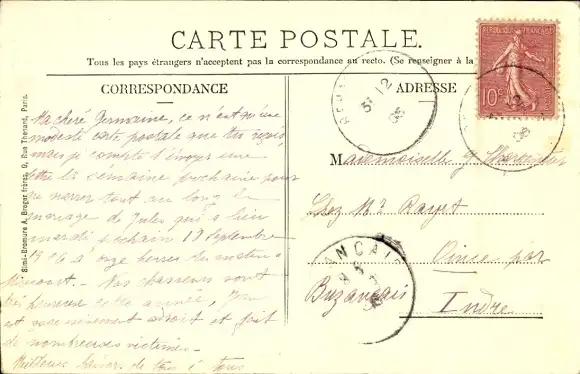 CARTE POSTALE.
Tous les pays étrangers n'acceptent pas la correspondance au recto. (Se renseigner à la
CORRESPONDANCE
ADRESSE
RÉPUBLIQUE FRANÇAISE
10c
Simi-Bromure A. Breger frères, 9, Rue Thénard, Paris.
Ma chère Germaine, ce n'est qu'une
modeste carte postale que tu reçois
mais je compte t'envoyer une
lettre la semaine prochaine pour
te narrer tout au long le
mariage de Jules qui a lieu
mardi prochain 18 Septembre
1906 à onze heures du matin à
Nos chasseurs sont
très heureux cette année, Jean
est adroit et fait
de nombreuses victimes.
Meilleurs baisers de tous à tous
Mademoiselle G.
Chez Mr Rayet
Onice par
Buzançais
Indre
12
ANCAI